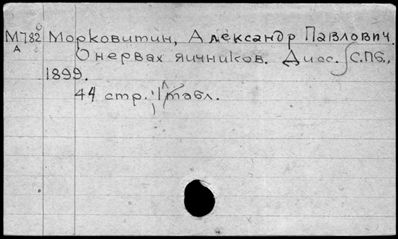 М782 Морковитин, Александр Павлович.
А О нервах яичников. Дисс. С.Пб.,
1899.
44 стр. 1 табл.